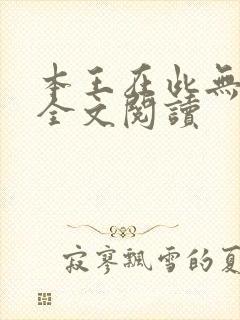 本王在此無
全文閱讀
寂寥飄雪的夏